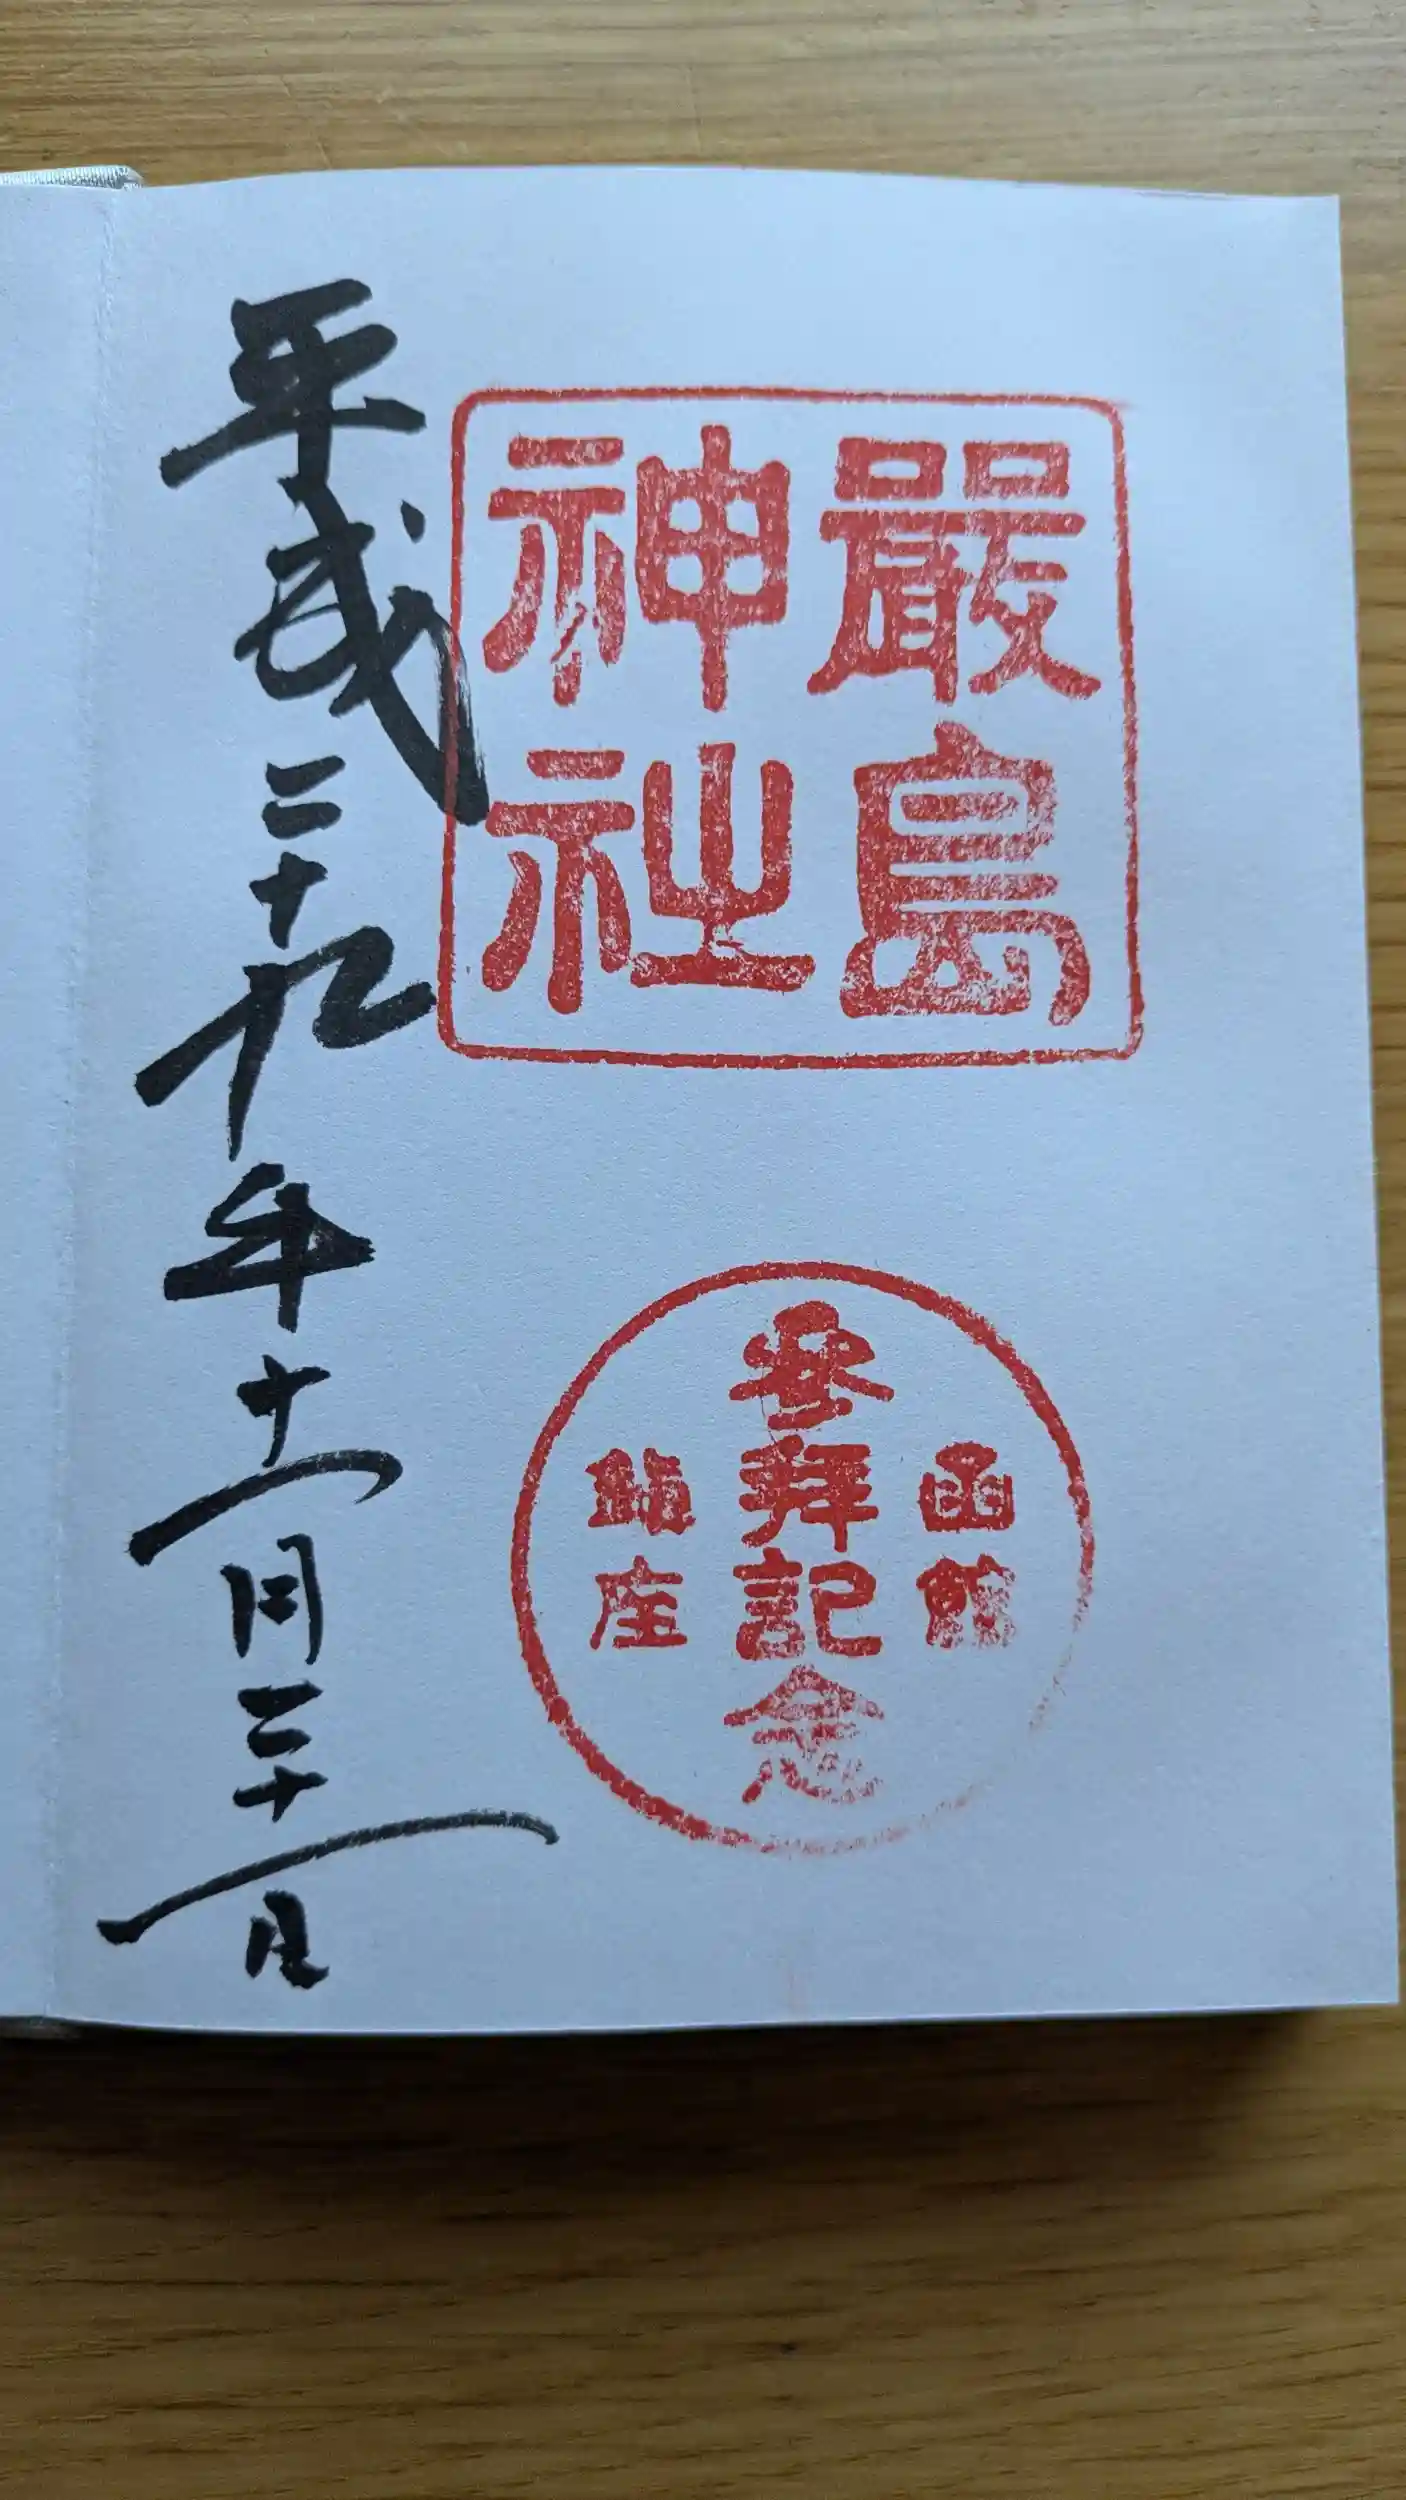 嚴島
神社
函館
参拝記念
鎮座
平成二十九年十一月二十一日